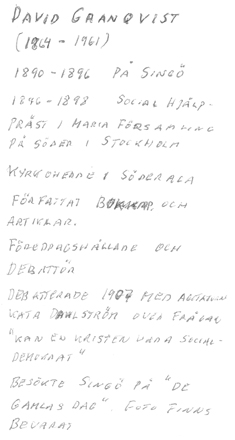 DAVID GRANQVIST
(1864 - 1961)
1890 - 1896 PÅ SINGÖ
1896 - 1898 SOCIAL HJÄLP-
PRÄST I MARIA FÖRSAMLING
PÅ SÖDER I STOCKHOLM
KYRKOHERDE I SÖDERALA
FÖRFATTAT BÖCKER OCH
ARTIKLAR.
FÖREDRAGSHÅLLARE OCH
DEBATTÖR
DEBATTERADE 1907 MED AGITATORN
KATA DAHLSTRÖM ÖVER FRÅGAN
"KAN EN KRISTEN VARA SOCIAL-
DEMOKRAT"
BESÖKTE SINGÖ PÅ "DE
GAMLAS DAG". FOTO FINNS
BEVARAT